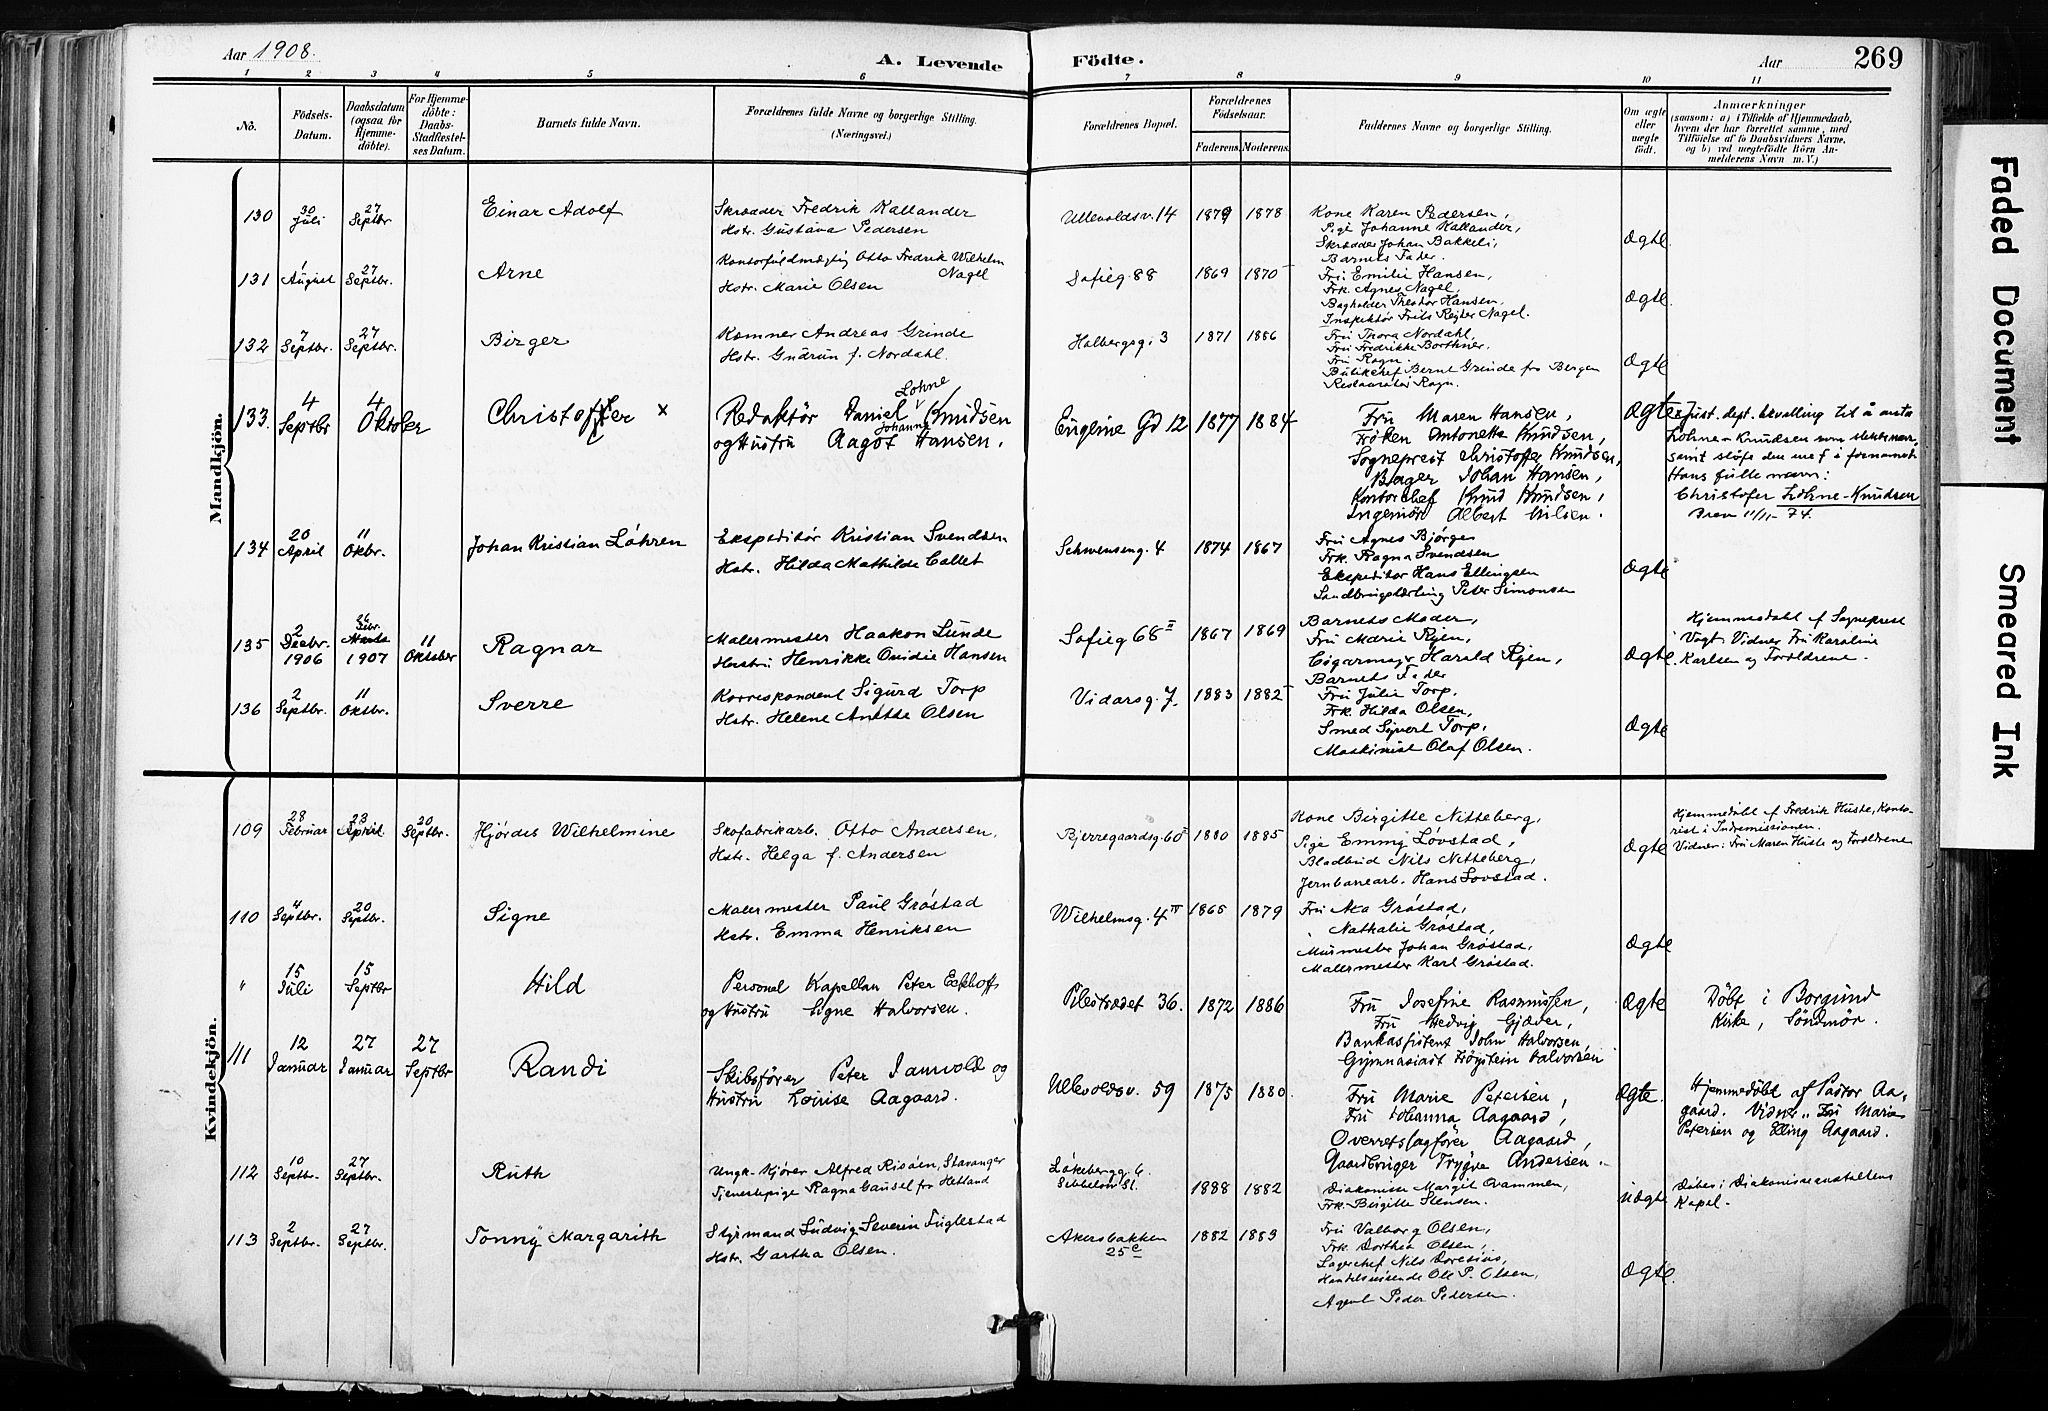 Aar 1908.
A. Levende Födte.
Aar
269
1 2 3 4 5 6 7 8 9 10 11
No.
Födsels-Datum.
Daabsdatum (ogsaa for Hjemme-döbte).
For Hjemme-döbte: Daabs-Stadfæstel-ses Datum.
Barnets fulde Navn.
Forældrenes fulde Navne og borgerlige Stilling. (Næringsvei.)
Forældrenes Bopæl.
Forældrenes Födselsaar.
Faderens. Moderens.
Faddernes Navne og borgerlige Stilling.
Om ægte eller uægte födt.
Anmærkninger
(saasom: a) i Tilfælde af Hjemmedaab,
hvem der har forrettet samme, med
Tilföielse af to Daabsvidners Navne,
og b) ved uægtefödte Börn An-
melderens Navn m. V.)
Mandkjön.
130 30 Juli 27 Septbr Einar Adolf
Skrædder Fredrik Kallander
Hstr. Gustava Pedersen
Ullevoldsv. 14 1879 1878
Kone Karen Pedersen,
Pige Johanne Kallander,
Skrædder Johan Bakkeli,
Barnets Fader.
Ægte
131 1 August 27 Septbr. Arne
Kontorfuldmægtig Otto Fredrik Wilhelm
Nagel
Hstr. Marie Olsen
Sofieg. 88 1869 1870
Fru Emilie Hansen,
Frk. Agnes Nagel,
Bogholder Theodor Hansen,
Inspektör Frits Nagel.
Ægte
132 7 Septbr. 27 Septbr. Birger
Kemner Andreas Grinde
Hstr. Gudrun f. Nordahl.
Holbergsg. 3 1871 1886
Fru Thora Nordahl,
Fru Fredrikke Borthner.
Fru Ragn.
Butikchef Bernt Grinde fra Bergen
Restauratör Ragn.
Ægte
133. 4 Septbr 4 Oktober Christoffer x
Lohne
Redaktör Daniel Knudsen
Johanne
og Hustru Aagot Hansen.
Eugenie Gd 12 1877 1884
Fru Maren Hansen,
Fröken Antonette Knudsen,
Sogneprest Christoffer Knudsen,
Bager Johan Hansen,
Kontorchef Knud Knudsen,
Ingeniör Albert Nilsen.
Ægte
x Just. dept. bevilling til å anta
Lohne-Knudsen som slektsnavn,
samt sløfe den ene f i fornavnet
Hans fulle navn:
Christofer Lohne-Knudsen
Brev 11/11-74.
134 20 April 11 Oktbr. Johan Kristian Löhren
Ekspeditör Kristian Svendsen
Hstr. Hilda Mathilde Callet
Schwenseng. 4 1874 1867
Fru Agnes Bjørge
Frk. Ragna Svendsen
Ekspeditör Hans Ellingsen
Peter Simonsen
Ægte
135 2 Decbr. 1906 1907 11 Oktober Ragnar
Malermester Haakon Lunde
Hustru Henrikke Ovidie Hansen
Sofieg 68 II 1867 1869
Barnets Moder,
Fru Marie Ryen,
Harald Ryen,
Barnets Fader
Ægte
Hjemmedøbt af Sogneprest
Vogt Vidner Fru Karoline
Karlsen og Forældrene.
136 2 Septbr. 11 Oktbr. Sverre
Korrespondent Sigurd Torp
Hstr. Helene Anette Olsen
Vidarsg. 7 1883 1882
Fru Julie Torp.
Frk. Hilda Olsen,
Smed Sivert Torp,
Maskinist Olaf Olsen.
Ægte
Kvindekjön.
109 28 Februar 23 April 20 Septbr. Hjørdis Wilhelmine
Skofabrikarb. Otto Andersen.
Hstr. Helga f. Andersen
Bjerregaardsg. 60 1880 1885
Kone Birgitte Nitteberg,
Pige Emmy Løvstad,
Bladbud Nils Nitteberg,
Jernbanearb. Hans Lovstad.
Ægte
Hjemmedøbt af Fredrik Huste, Konto-
rist i Indremissionen.
Vidner: Fru Maren Huste og Forældrene
110 4 Septbr. 20 Septbr. Signe
Malermester Paul Grøstad
Hstr. Emma Henriksen
Wilhelmsg. 4 II 1865 1879
Fru Aea Grøstad,
Nathalie Grøstad,
Murmester Johan Grøstad,
Malermester Karl Grøstad.
Ægte
" 15 Juli 15 Septbr Hild
Personel Kapellan Peter Eckhoff
og Hustru Signe Halvorsen.
Pilestrædet 36. 1872 1886
Fru Josefine Rasmussen,
Fru Hedvig Gjæver,
Bankassistent John Halvorsen,
Gymnasiast Frøystein Halvorsen
Ægte
Döbt i Borgund
Kirke, Söndmör.
111 12 Januar 27 Januar 27 Septbr Randi
Skibsförer Peter Jamvold og
Hustru Louise Aagaard.
Ullevoldsv. 59 1875 1880
Fru Marie Petersen,
Fru Johanna Aagaard,
Overretssagförer Aagaard,
Gaardbruger Trygve Andersen.
Ægte.
Hjemmedöbt af Pastor Aa-
gaard. Vidne: Fru Marie
Petersen og Elling Aagaard.
112 10 Septbr. 27 Septbr. Ruth
Ungk. Kjörer Alfred Risöen, Stavanger
Tjenestepige Ragna Gausel fra Hetland
Løkebergg. 6. 1888 1882
Diakonisse Margit Ovammen,
Frk. Birgitte Stensen.
Uægte
Döbt i Diakonisseanstaltens
Kapel.
113 2 Septbr. 27 Septbr. Tonny Margarith
Styrmand Ludvig Severin Fuglestad
Hstr. Gartha Olsen.
Akersbakken 25 c 1882 1883
Fru Valborg Olsen,
Frk. Dorthea Olsen,
Lagerchef Nils Doresius,
Handelsreisende Ole P. Olsen,
Agent Peder Pedersen.
Ægte.
Faded Document
Smeared Ink